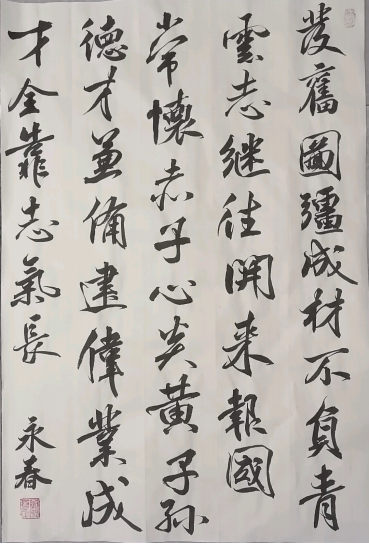 發奮圖疆成材不負青
雲志继往開来報國
常懷赤子心炎黄子孫
德才兼備建偉業成
才全靠志氣長
永春